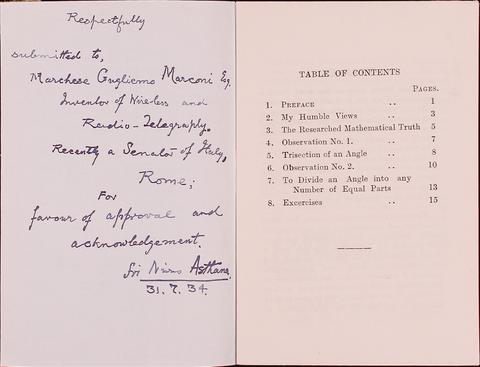 Respectfully
submitted to,
Marchese Guglielmo Marconi Esq.
Inventor of Wireless and
Radio-Telegraphy.
Recently a Senator of Italy,
Rome;
For
favour of approval and
acknowledgement.
Sri Niwas Asthana
31.7.34.
TABLE OF CONTENTS
PAGES.
1. PREFACE .. 1
2. My Humble Views .. 3
3. The Researched Mathematical Truth 5
4. Observation No. 1. .. 7
5. Trisection of an Angle .. 8
6. Observation No. 2. .. 10
7. To Divide an Angle into any
Number of Equal Parts 13
8. Excercises .. 15